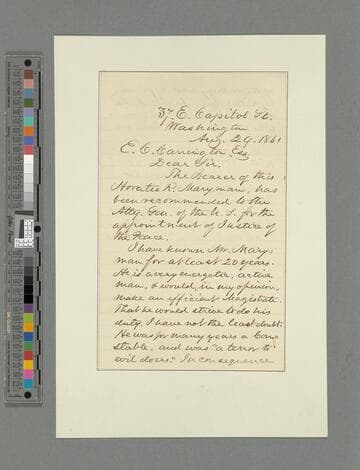 37 E. Capitol St.
Washington
Aug. 29. 1861
E. C. Carrington Esq
Dear Sir,
The Bearer of this
Horatio R. Maryman, has
been recommended to the
Atty. Gen. of the U. S. for the
appointment of Justice of
the Peace.
I have known Mr. Mary-
man for at least 20 years.
He is a very energetic, active
man, & would, in my opinion,
make an efficient Magistrate.
That he would strive to do his
duty, I have not the least doubt.
He was for many years a Con-
stable, and was "a terror to
evil doers." In consequence